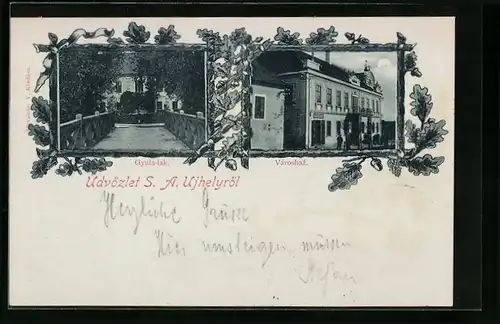 Gyula-lak.
Városház.
Üdvözlet S. A. Ujhelyről
Herzliche Grüsse
Hier umsteigen müssen
Stefan